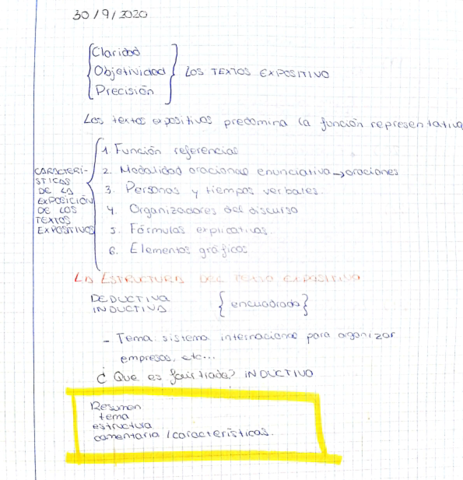 30/9/2020
Claridad
Objetividad
Precisión
LOS TEXTOS EXPOSITIVO
Los textos expositivos predomina la función representativa
CARACTERÍ-
STICAS
DE LA
EXPOSICIÓN
DE LOS
TEXTOS
EXPOSITIVOS
1. Función referencial
2. Modalidad oracional enunciativa → oraciones
3. Personas y tiempos verbales.
4. Organizadores del discurso
5. Fórmulas explicativas.
6. Elementos gráficos
LA ESTRUCTURA DEL EXPOSITIVO
DEDUCTIVA
INDUCTIVA
{encuadrada}
- Tema: sistema internacional para organizar
empresas, etc...
¿Que es fairtrade? INDUCTIVO
Resumen
tema
estructura
comentario / características.